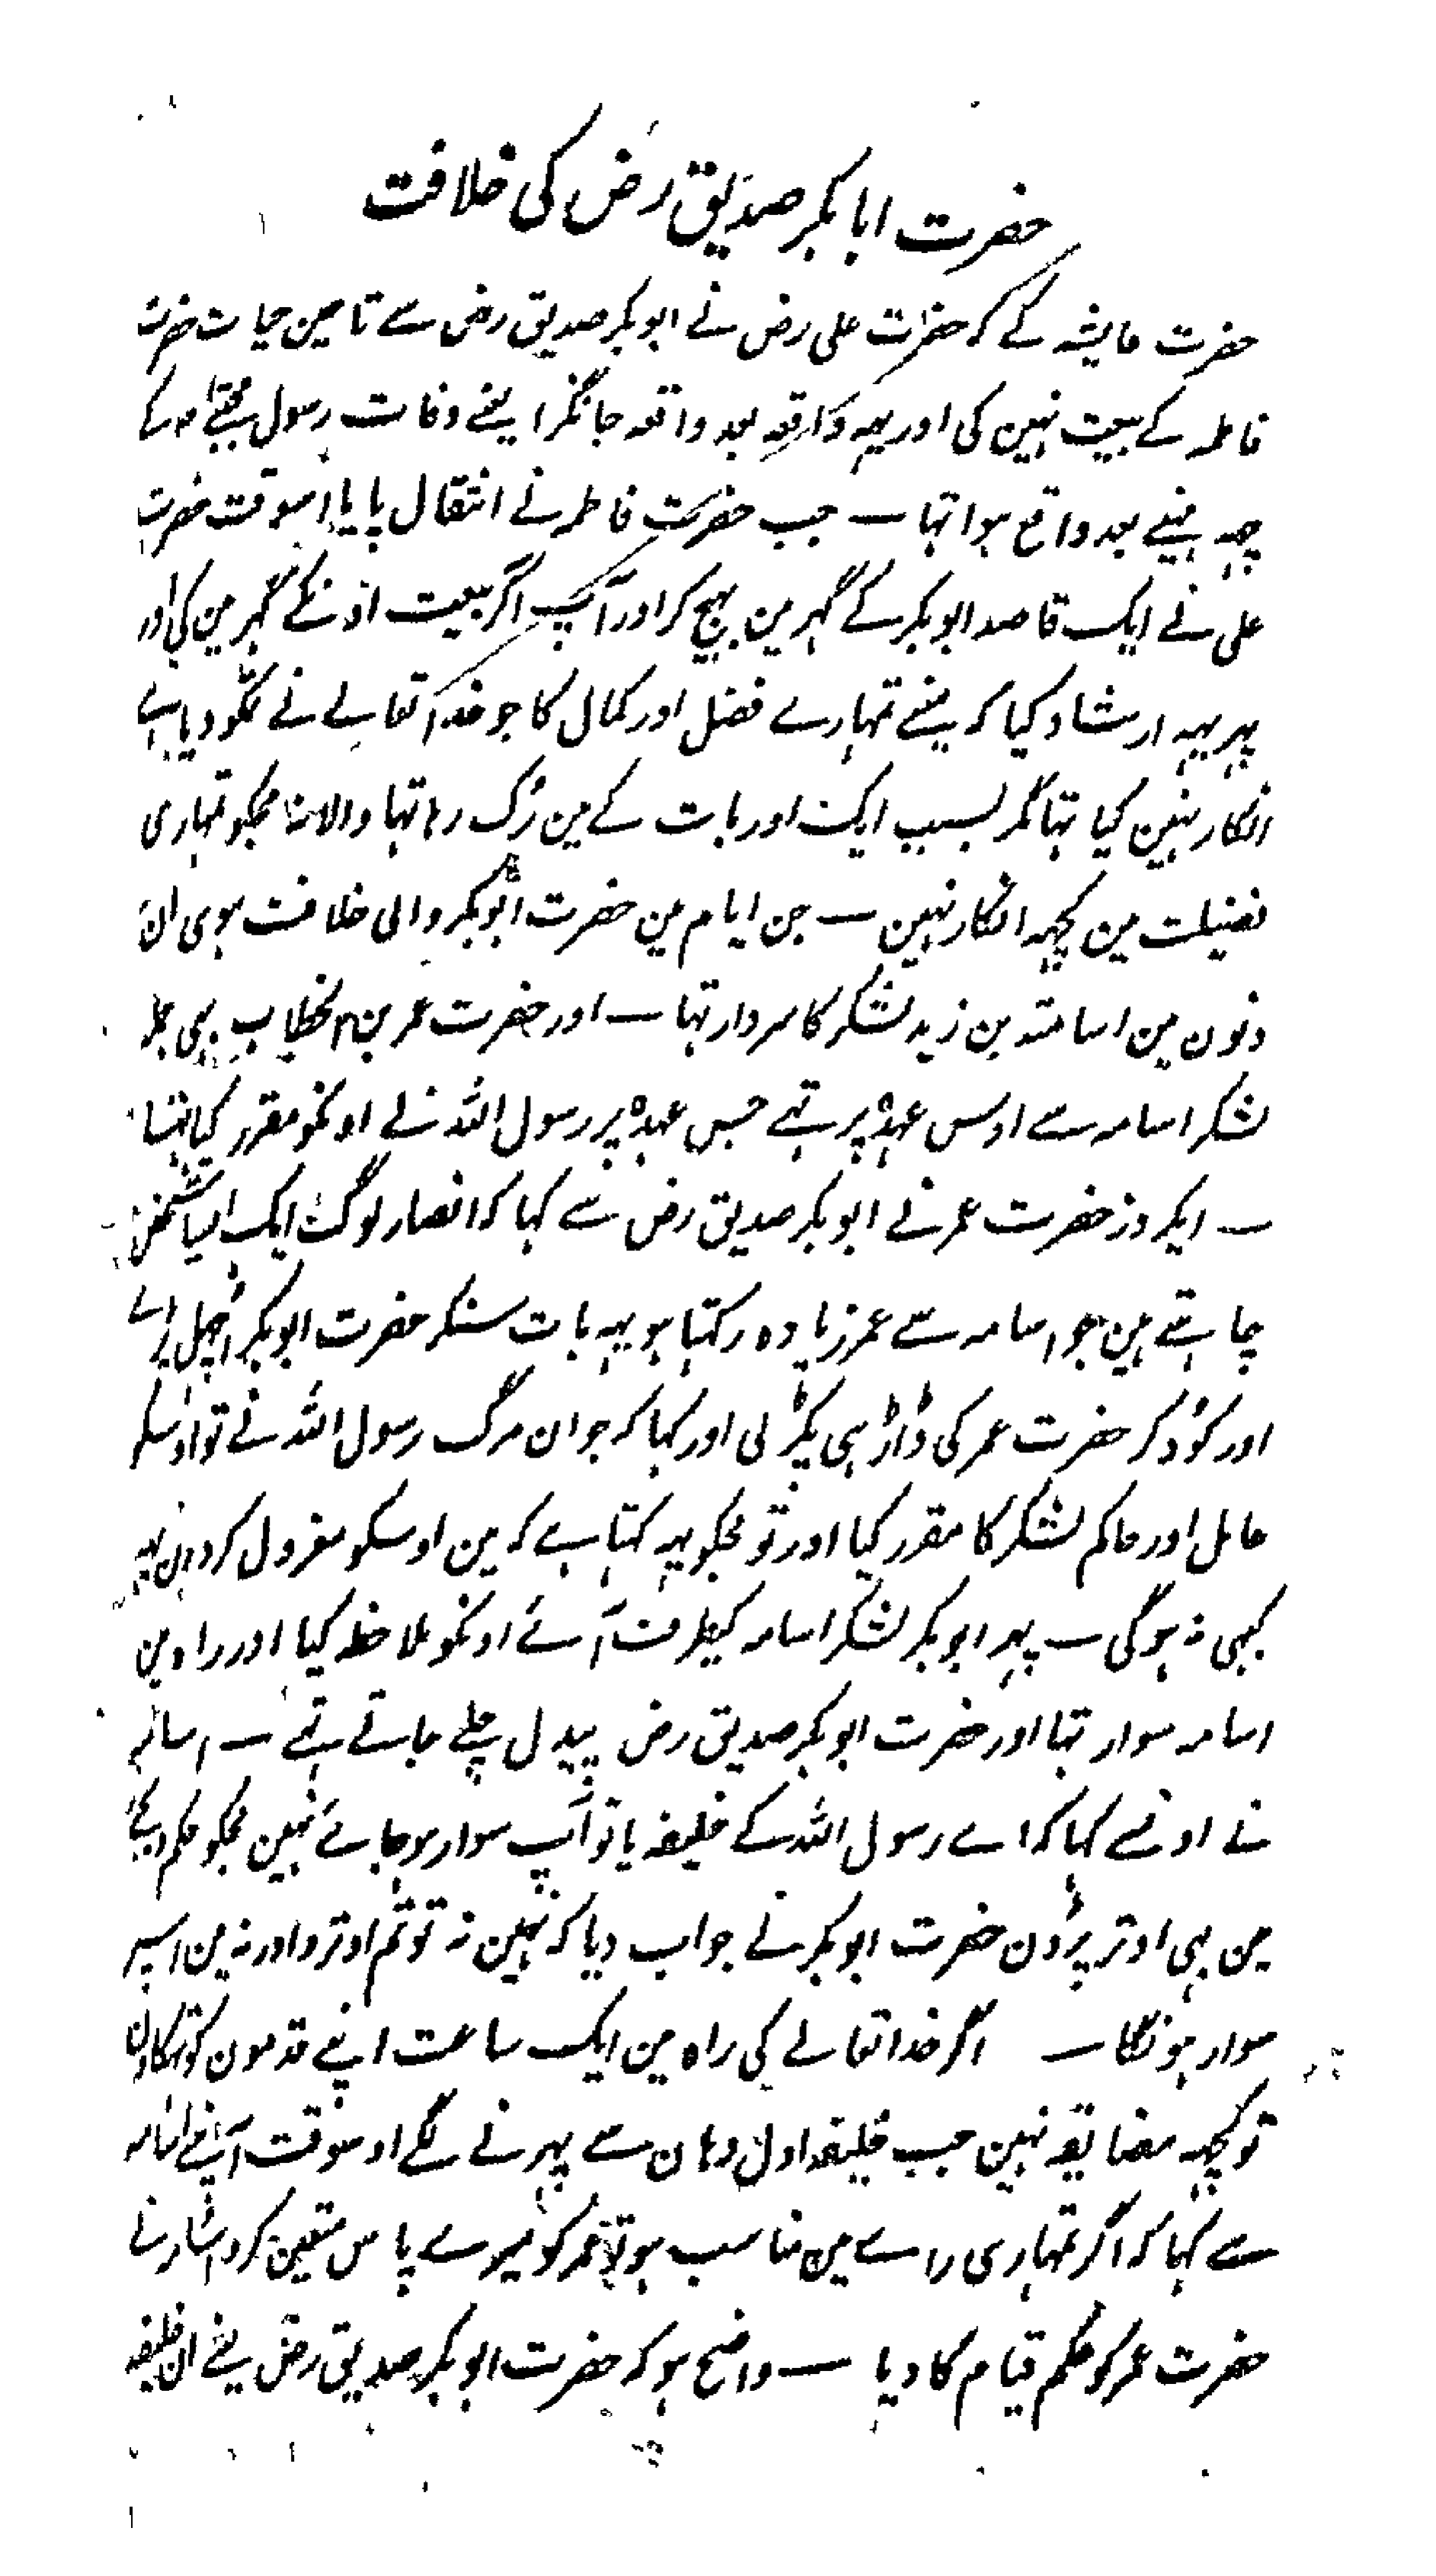 حضرت ابا بکر صدیق رض کی خلافت
حضرت عایشہ کے کہ حضرت علی رض نے ابوبکر صدیق رض سے تا حین حیات حضرت
فاطمہ کے بیعت نہین کی اور یہہ واقعہ بعد واقعہ جانگزا یعنے وفات رسول کے
چہہ مہینے بعد واقع ہوا تہا ـــ جب حضرت فاطمہ نے انتقال پایا اسوقت حضرت
علی نے ایک قاصد ابوبکر کے گہر مین بہیج کر اور آپ اکر بیعت اونکے گہر مین کی اور
پہر یہہ ارشاد کیا کہ مینے تمہارے فضل اور کمال کا جو خدا تعالے نے تمکو دیا ہے
انکار نہین کیا تہا مگر بسبب ایک اور بات کے مین رک رہا تہا والا نا مجکو تمہاری
فضیلت مین کچہہ انکار نہین ـــ جن ایام مین حضرت ابوبکر والی خلافت ہوی ان
دنون مین اسامتہ بن زید لشکر کا سردار تہا ـــ اور حضرت عمر بن الخطاب بہی
لشکر اسامہ سے اوس عہدہ پر تہے جس عہدہ پر رسول اللہ نے اونکو مقرر کیا تہا
ـــ ایکروز حضرت عمر نے ابوبکر صدیق رض سے کہا کہ انصار لوگ ایک ایسا شخص
چاہتے ہین جو اسامہ سے عمر زیادہ رکہتا ہو یہہ بات سنکر حضرت ابوبکر اچہل پڑے
اور کود کر حضرت عمر کی ڈاڑہی پکڑ لی اور کہا کہ جوان مرگ رسول اللہ نے تو اوسکو
عامل اور حاکم لشکر کا مقرر کیا اور تو مجکو یہہ کہتا ہے کہ مین اوسکو معزول کردون یہہ
کبہی نہ ہوگی ـــ پہر ابوبکر لشکر اسامہ کیطرف آئے اونکو ملاحظہ کیا اور راہ مین
اسامہ سوار تہا اور حضرت ابوبکر صدیق رض پیدل چلے جاتے تہے ـــ اسامہ
نے اونسے کہا کہ اے رسول اللہ کے خلیفہ یا تو آپ سوار ہو جائے نہین مجکو حکم دیجے
مین بہی اوتر پڑون حضرت ابوبکر نے جواب دیا کہ نہین نہ تو تم اوترو اور نہ مین اسپر
سوار ہونگا ـــ اگر خدا تعالے کی راہ مین ایک ساعت اپنے قدمون کو تہکاون
تو کچہہ مضایقہ نہین جب خلیفہ اول وہان سے پہرنے لگے اوسوقت آپنے اسامہ
سے کہا کہ اگر تمہاری راے مین مناسب ہو تو عمر کو میرے پاس متعین کردو اسامہ نے
حضرت عمر کو حکم قیام کا دیا ـــ واضح ہو کہ حضرت ابوبکر صدیق رض یعنے ان خلیفہ